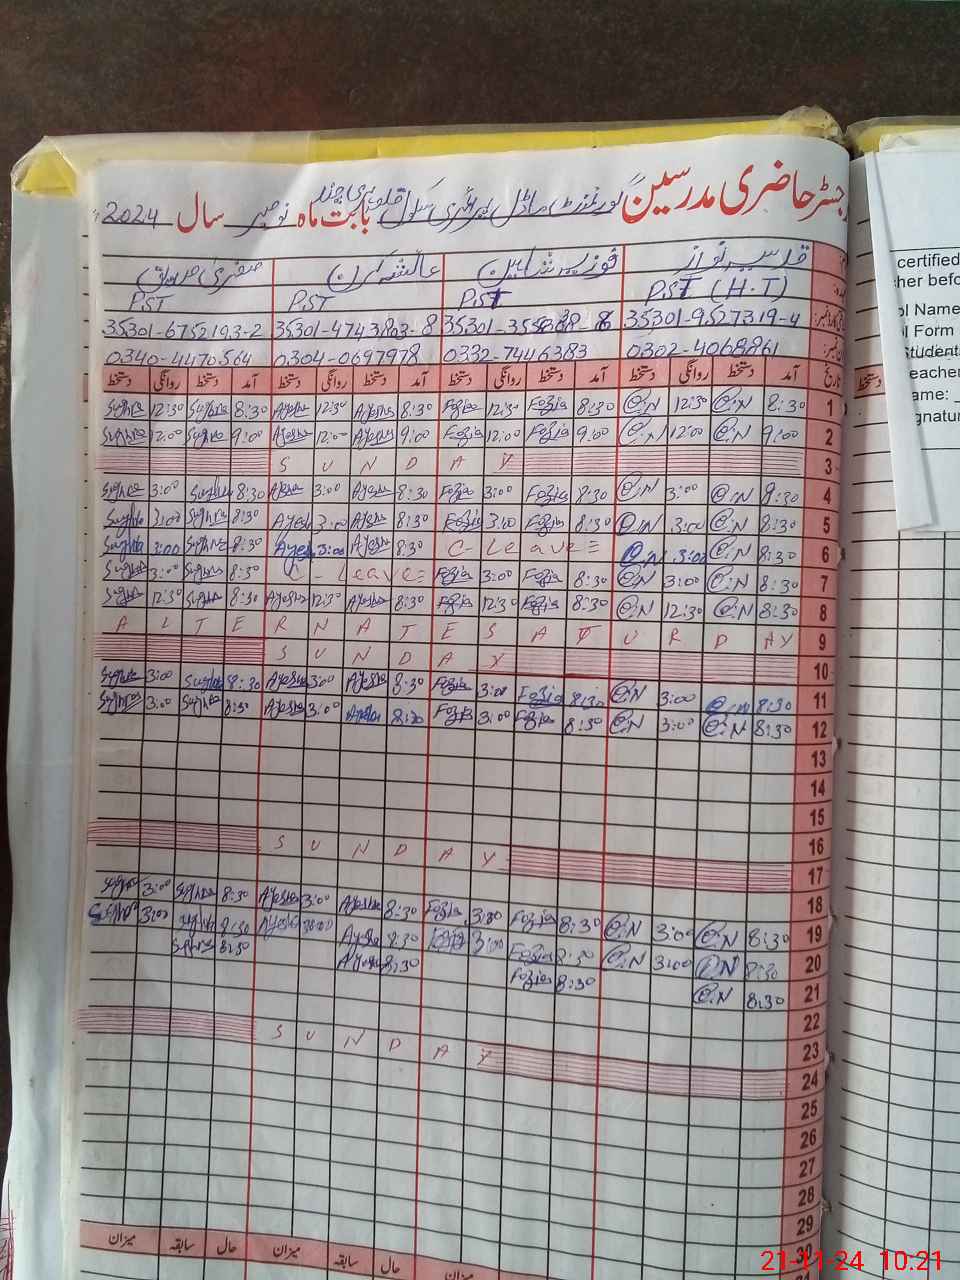 رجسٹر حاضری مدرسین گورنمنٹ ماڈل پرائمری سکول قلعہ بابت ماہ نومبر سال 2024
قدسیہ نواز فوزیہ عائشہ کرن صغریٰ صدیق
P.ST (H.T) P.ST P.ST P.ST
35301-9527319-4 35301-4743803-8 35301-6752193-2
0302-4068861 0332-7446383 0304-0697978 0340-4470564
تاریخ آمد دستخط روانگی دستخط آمد دستخط روانگی دستخط آمد دستخط روانگی دستخط آمد دستخط روانگی دستخط
1 8:30 @:N 12:30 @:N 8:30 Fozia 12:30 Fozia 8:30 Ayesha 12:30 Ayesha 8:30 Sughra 12:30 Sughra
2 9:00 @:N 12:00 @:N 9:00 Fozia 12:00 Fozia 9:00 Ayesha 12:00 Ayesha 9:00 Sughra 12:00 Sughra
3 SUNDAY
4 8:30 @:N 3:00 @:N 8:30 Fozia 3:00 Fozia 8:30 Ayesha 3:00 Ayesha 8:30 Sughra 3:00 Sughra
5 8:30 @:N 3:00 @:N 8:30 Fozia 3:00 Fozia 8:30 Ayesha 3:00 Ayesha 8:30 Sughra 3:00 Sughra
6 8:30 @:N 3:00 @:N C-Leave 8:30 Ayesha 3:00 Ayesha 8:30 Sughra 3:00 Sughra
7 8:30 @:N 3:00 @:N 8:30 Fozia 3:00 Fozia C-Leave 8:30 Sughra 3:00 Sughra
8 8:30 @:N 12:30 @:N 8:30 Fozia 12:30 Fozia 8:30 Ayesha 12:30 Ayesha 8:30 Sughra 12:30 Sughra
9 ALTERNATE SATURDAY
10 SUNDAY
11 8:30 @:N 3:00 @:N 8:30 Fozia 3:00 Fozia 8:30 Ayesha 3:00 Ayesha 8:30 Sughra 3:00 Sughra
12 8:30 @:N 3:00 @:N 8:30 Fozia 3:00 Fozia 8:30 Ayesha 3:00 Ayesha 8:30 Sughra 3:00 Sughra
13
14
15
16
17 SUNDAY
18
19 8:30 @:N 3:00 @:N 8:30 Fozia 3:00 Fozia 8:30 Ayesha 3:00 Ayesha 8:30 Sughra 3:00 Sughra
20 8:30 @:N 3:00 @:N 8:30 Fozia 3:00 Fozia 8:30 Ayesha Ayesha 8:30 Sughra 3:00 Sughra
21 8:30 @:N 8:30 Fozia 8:30 Ayesha 8:30 Sughra
22
23
24 SUNDAY
25
26
27
28
29
30
میزان حال سابقہ میزان حال سابقہ میزان
دستخط
certified
her befo
ol Name
ol Form
Student
eacher
ame: _
gnatur
21-11-24 10:21